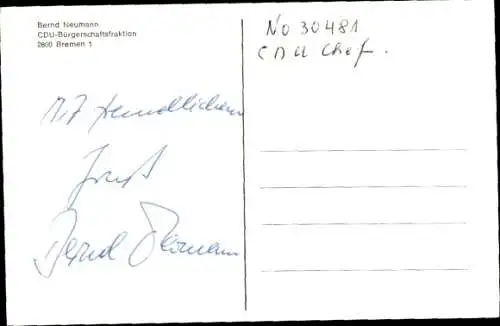 Bernd Neumann
CDU-Bürgerschaftsfraktion
2800 Bremen 1
No 30481
CDU Chef.
Mit freundlichem
Gruß
Bernd Neumann